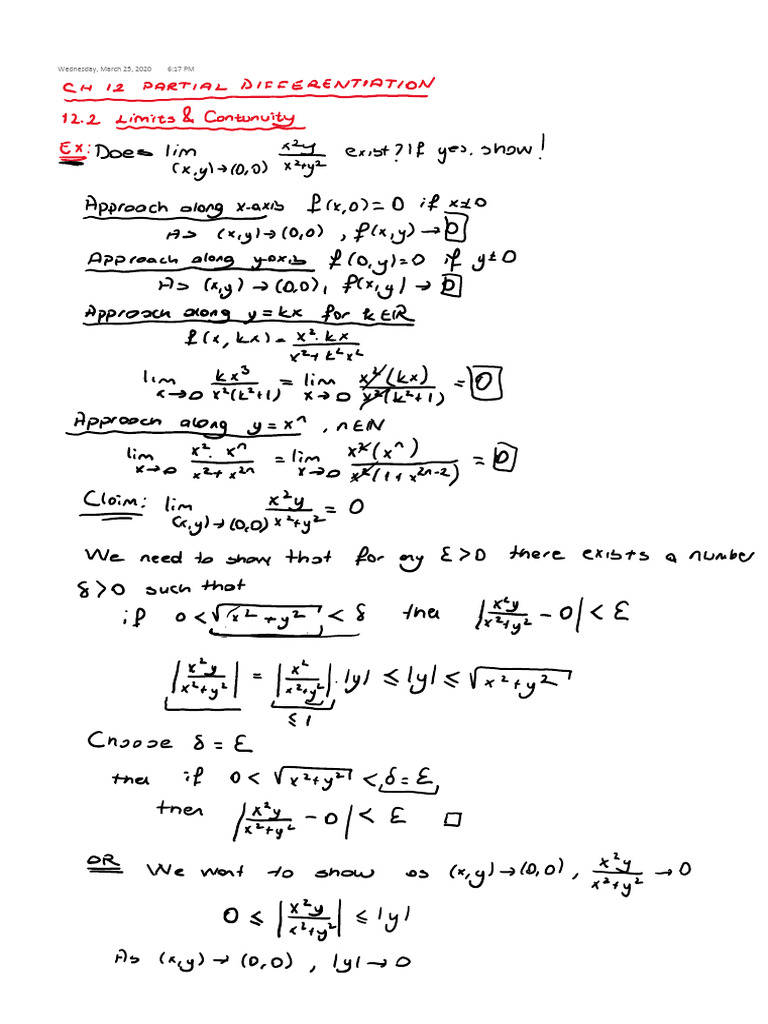 Wednesday, March 25, 2020 6:17 PM
CH 12 PARTIAL DIFFERENTIATION
12.2 Limits & Contunuity
Ex: Does lim_{(x,y)→(0,0)} x²y/(x²+y²) exist? If yes, show!
Approach along x-axis f(x,0)=0 if x≠0
As (x,y)→(0,0), f(x,y)→0
Approach along y-axis f(0,y)=0 if y≠0
As (x,y)→(0,0), f(x,y)→0
Approach along y=kx for k∈ℝ
f(x,kx) = x²·kx/(x²+k²x²)
lim_{x→0} kx³/(x²(k²+1)) = lim_{x→0} x²(kx)/(x²(k²+1)) = 0
Approach along y=xⁿ, n∈ℕ
lim_{x→0} x²·xⁿ/(x²+x²ⁿ) = lim_{x→0} x²(xⁿ)/(x²(1+x²ⁿ⁻²)) = 0
Claim: lim_{(x,y)→(0,0)} x²y/(x²+y²) = 0
We need to show that for any ε>0 there exists a number
δ>0 such that
if 0<√(x²+y²)<δ then |x²y/(x²+y²) - 0|<ε
|x²y/(x²+y²)| = |x²/(x²+y²)|·|y| ≤ |y| ≤ √(x²+y²)
≤1
Choose δ=ε
then if 0<√(x²+y²)<δ=ε
then |x²y/(x²+y²) - 0|<ε □
OR We want to show as (x,y)→(0,0), x²y/(x²+y²)→0
0 ≤ |x²y/(x²+y²)| ≤ |y|
As (x,y)→(0,0), |y|→0